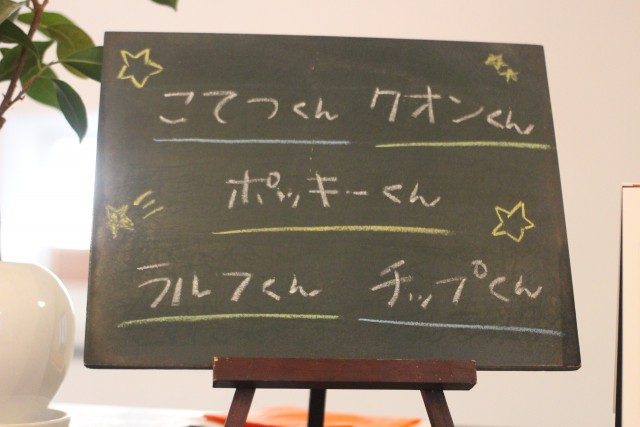 こてつくん クオンくん
ポッキーくん
ラルフくん チップくん